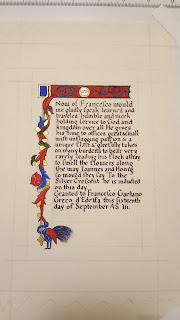 Now of Francesco would
we gladly speak, learned and
traveled, humble and meek
holding service to God and
kingdom over all. He gives
his time to offices great & small
with unflagging passion & a
unique flair & gleefully takes
on many burdens to bear very
rarely leading his flock astray
to smell the flowers along
the way. Tannes and Honig
so moved they say To the
Silver Crescent he is inducted
on this day.
Granted to Francesco Gaetano
Greco d'Edessa this sixteenth
day of September AS